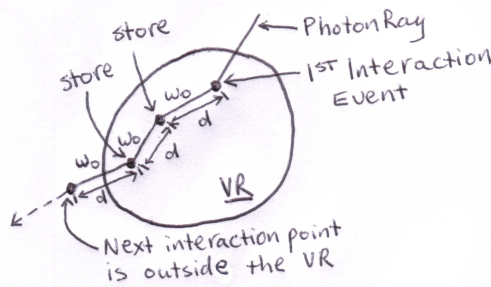 store
PhotonRay
store
1ST Interaction
Event
wo
wo
wo
d
d
d
VR
Next interaction point
is outside the VR